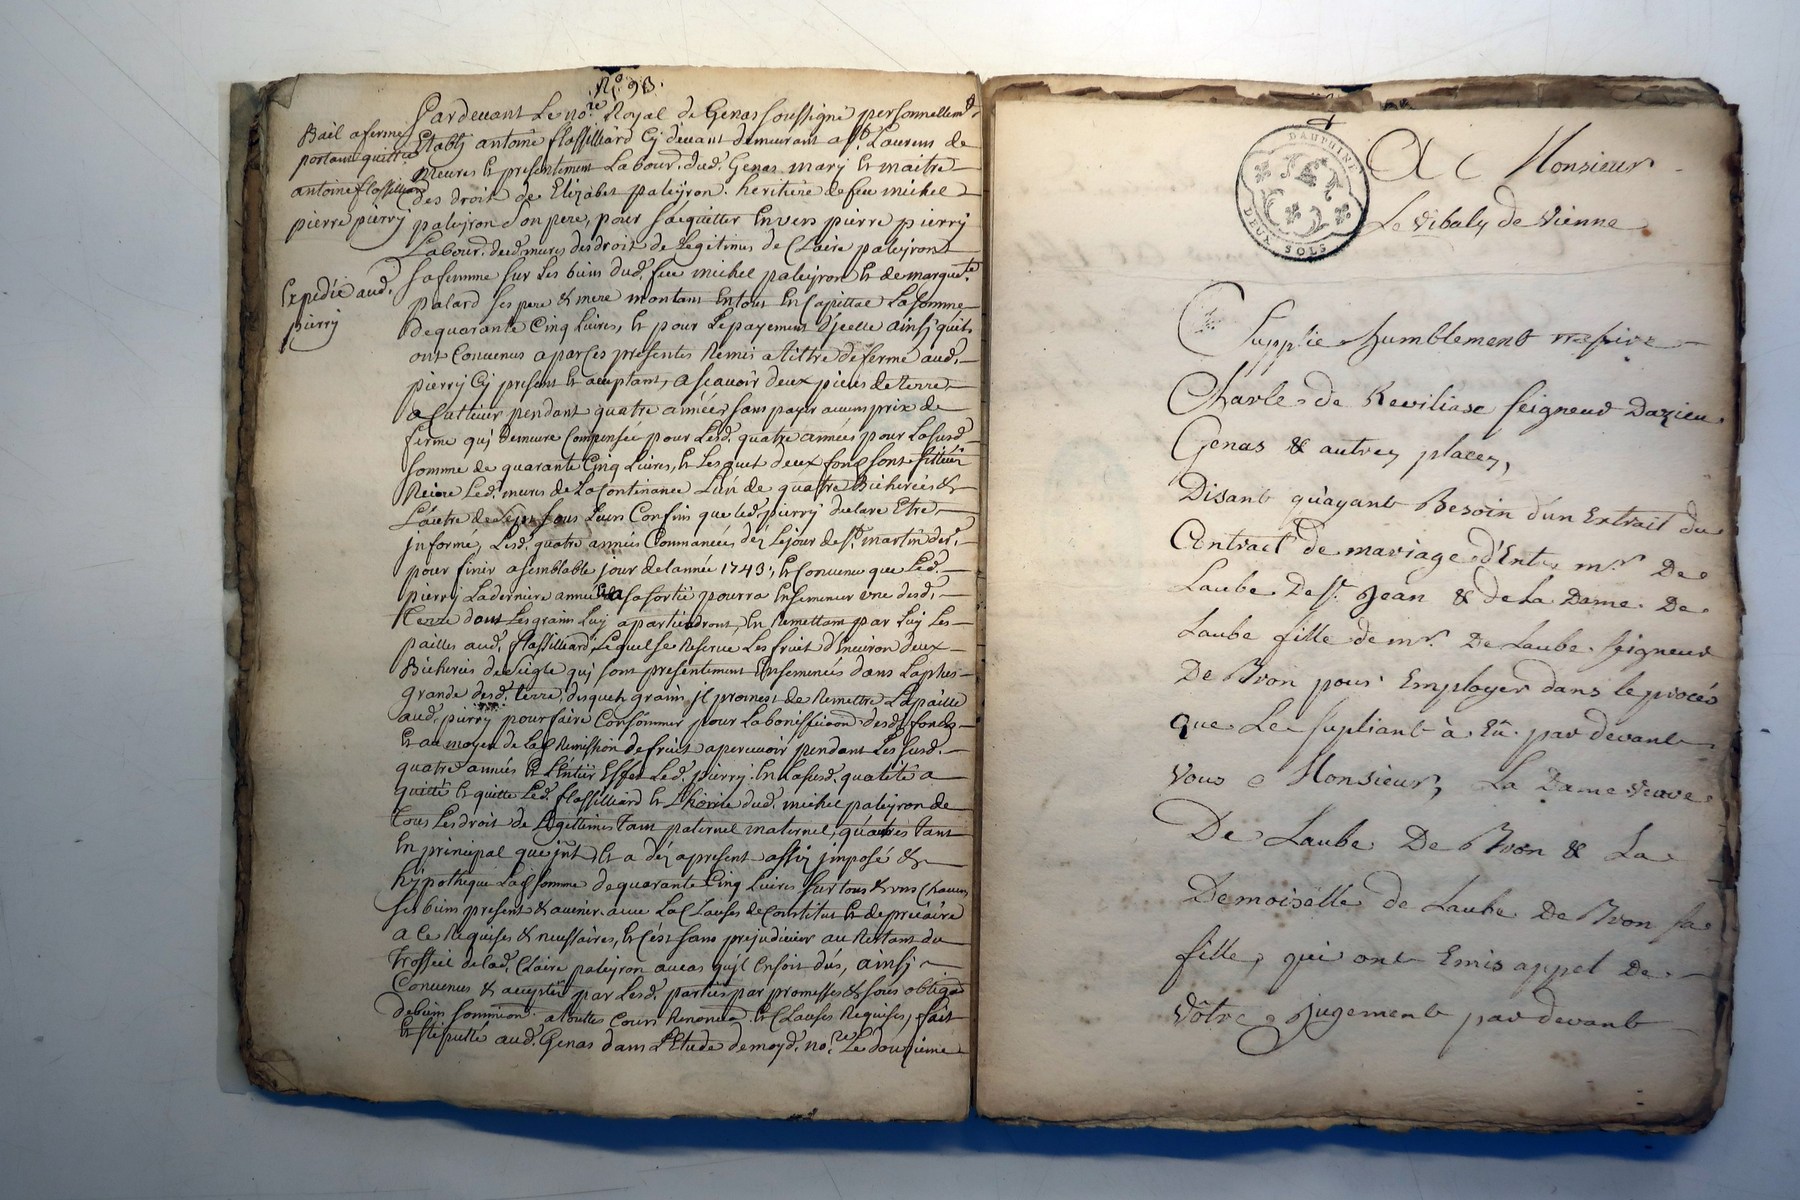 N.º 93.
Bail a ferme
portant quittce
antoine flassilliard
pierre pierry
Expedié aud.
pierry
Pardevant Le no.re Royal de Genas soussigné personnellem.t
Etably antoine flassilliard Cy devant demeurant a St. Laurens de
Meures et presentement Labour. dud. Genas mary et maitre
des droit de Elizabet paleyron heritiere de feu michel
paleyron son pere, pour sacquitter Envers pierre pierry
Labour. dud. mures des droit de Legitimes de Claire paleyron
sa femme sur les biens dud. feu michel paleyron et de margute.
palard ses pere & mere montant En tout En Capittal La somme
de quarante Cinq Livres, et pour Le payement d'jcelle ainsj quils
ont Convenus a par Ces presentes Remis a tittre de ferme aud.
pierry Cy present et acceptant, a scavoir deux pieces de terre
a Cultiver pendant quatre années sans payer aucun prix de
ferme quj demeure Compensée pour Lesd. quatre années pour La susd.
somme de quarante Cinq Livres, et Lesquel deux fond sont scittués
Riere Led. mures de La Continance Lun de quatre Bicherées &
L'autre de sept sous Leurs Confins que led. pierry declare Etre
jnformé, Lesd. quatre années Commancées dez Le jour de St. martin der.
pour finir a semblable jour de lannée 1743, et Convenu que Led.
pierry La derniere année de sa sortie pourra Ensemencer une desd.
Terre dont Les grains Luy apartiendront, En Remettant par Luy Les
pailles aud. flassilliard, Lequel se Reserve Les fruit d'Environ deux
Bicherées de seigle quj sont presentement Ensemencées dans La plus
grande desd. terre, desquels grains jl promet de Remettre La paille
aud. pierry pour faire Consommer pour La bonissication desd. fonds
Et au moyen de La Remission de fruit a percevoir pendant Les susd.
quatre années Et L'Entier Effet Led. pierry En La susd. qualité a
quitté et quitte Led. flassilliard et L'hoirie dud. michel paleyron de
tous Les droit de Legittimes tant paternel maternel, quautres tant
En principal que jnt. Et a dez a present assis jmposé &
hypothequé La somme de quarante Cinq Livres sur tous & uns Chacuns
ses biens present & avenir avec La Clauses de Constitut et de precaire
a Ce Requises & necessaires, et C'est sans prejudicier au Restant du
Trosseil de lad. Claire paleyron aucas quil En soit dus, ainsj
Convenus & accepté par Lesd. parties par promesses & sous obligaon.
de biens soumission a touttes Cours Renonciaon. et Clauses Requises, fait
Et stipullé aud. Genas dans L'Etude de moyd. no.re Le douzieme
DAUPHINÉ
DEUX SOLS
A Monsieur
Le vibaly de Vienne
Supplie humblement messire
Charle de Reviliasc seigneur Dazieu
Genas & autres places,
Disant qu'ayant Besoin d'un Extrait du
Contract de mariage d'Entre mr. De
Laube De St. Jean & de La Dame De
Laube fille de mr. De Laube seigneur
De Bron pour Employer dans le procés
que Le supliant à Eû par devant
vous Monsieur, La Dame veuve
De Laube De Bron & La
Demoiselle de Laube De Bron sa
fille, qui ont Emis appel De
vôtre Jugement par devant